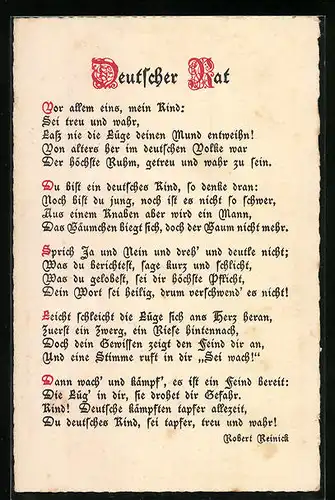 Deutscher Rat
Vor allem eins, mein Kind:
Sei treu und wahr,
Laß nie die Lüge deinen Mund entweihn!
Von alters her im deutschen Volke war
Der höchste Ruhm, getreu und wahr zu sein.
Du bist ein deutsches Kind, so denke dran:
Noch bist du jung, noch ist es nicht so schwer,
Aus einem Knaben aber wird ein Mann,
Das Bäumchen biegt sich, doch der Baum nicht mehr.
Sprich Ja und Nein und dreh' und deutle nicht;
Was du berichtest, sage kurz und schlicht,
Was du gelobest, sei dir höchste Pflicht,
Dein Wort sei heilig, drum verschwend' es nicht!
Leicht schleicht die Lüge sich ans Herz heran,
Zuerst ein Zwerg, ein Riese hintennach,
Doch dein Gewissen zeigt den Feind dir an,
Und eine Stimme ruft in dir „Sei wach!"
Dann wach' und kämpf', es ist ein Feind bereit:
Die Lüg' in dir, sie drohet dir Gefahr.
Kind! Deutsche kämpften tapfer allezeit,
Du deutsches Kind, sei tapfer, treu und wahr!
Robert Reinick